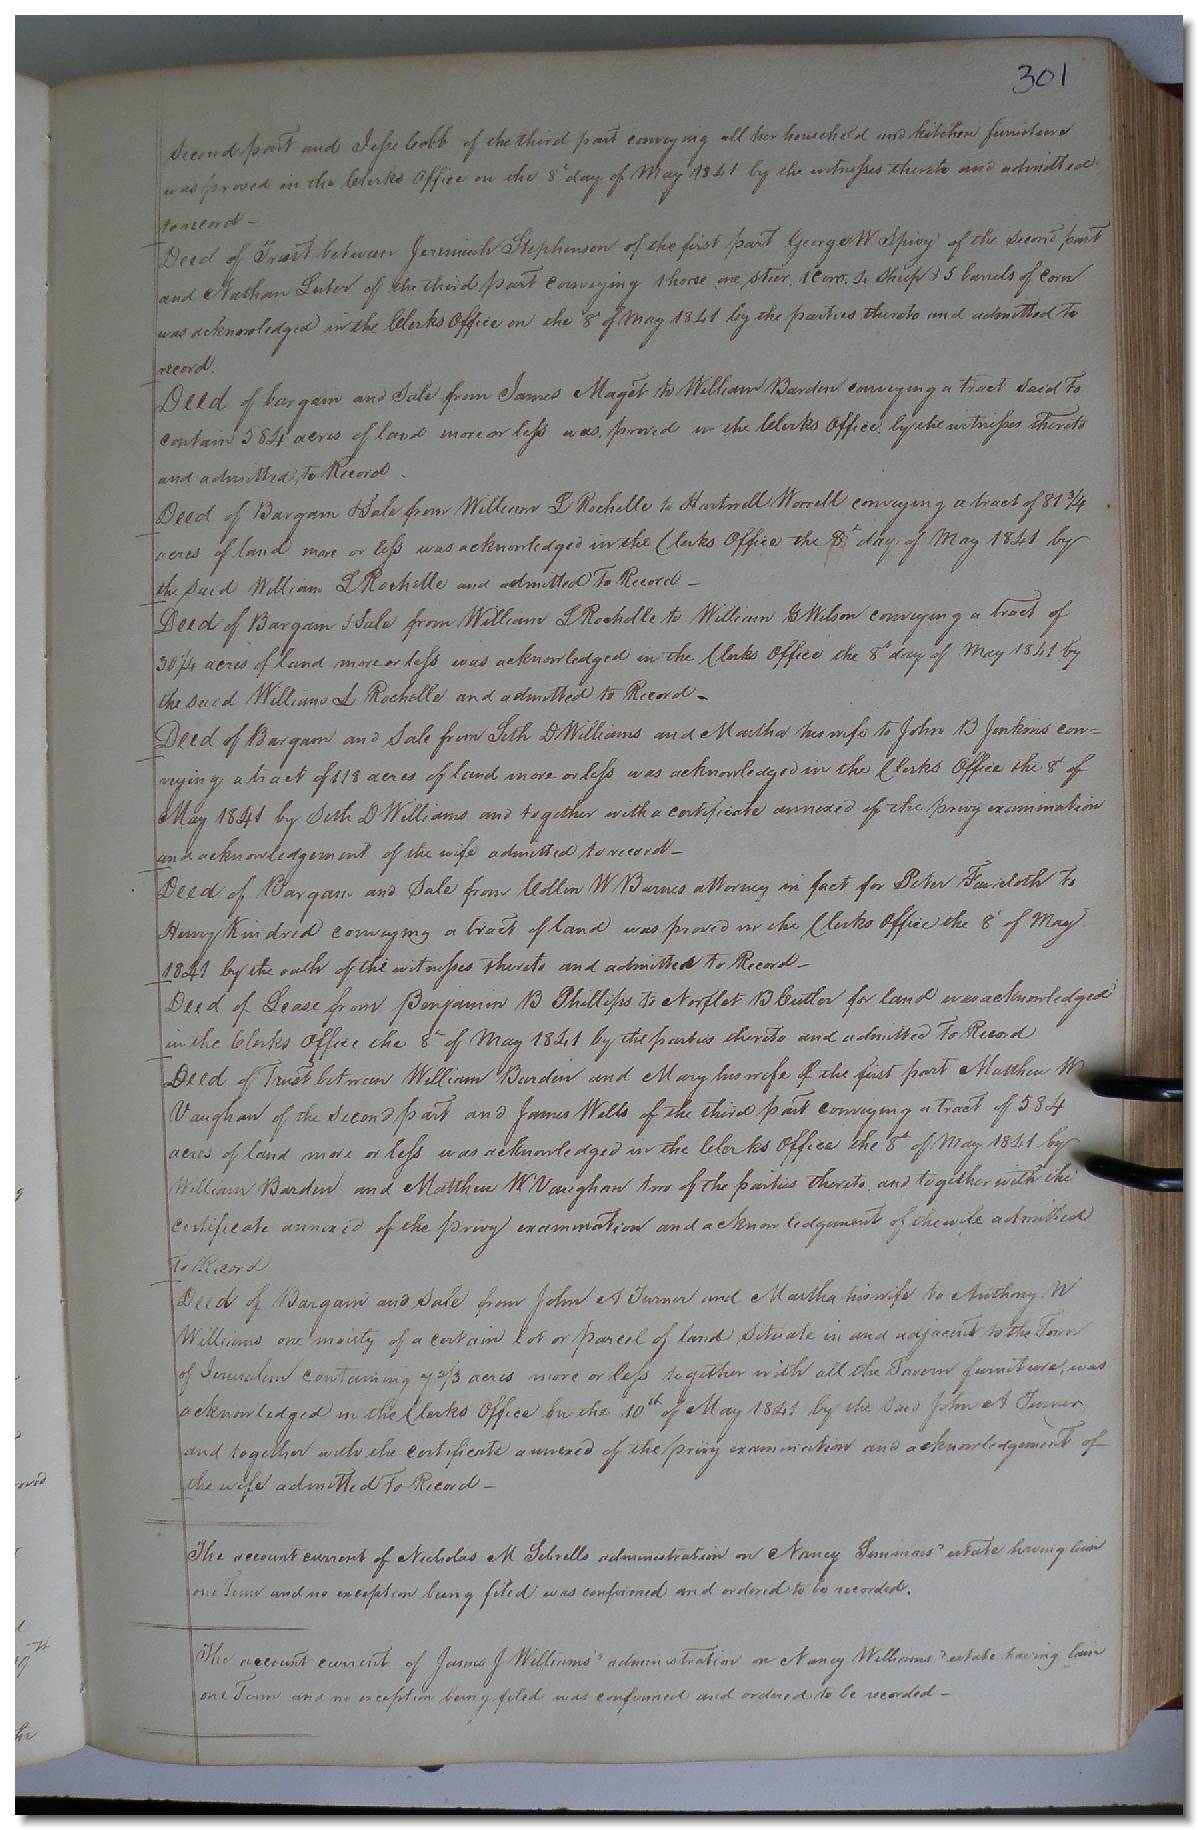 301
Second part and Jesse Cobb of the third part conveying all her household and kitchen furniture
was proved in the Clerks Office on the 8th day of May 1841 by the witnesses thereto and admitted
to record -
Deed of Trust between Jeremiah Stephenson of the first part George W Spivy of the second part
and Nathan Luter of the third part conveying 1 horse one steer, 1 Cow, 4 Sheep & 5 barrels of corn
was acknowledged in the Clerks Office on the 8th of May 1841 by the parties thereto and admitted to
record.
Deed of bargain and Sale from James Maget to William Barden conveying a tract said to
contain 584 acres of land more or less was proved in the Clerks Office by the witnesses thereto
and admitted to Record.
Deed of Bargain & Sale from William L Rochelle to Hartwell Worrell conveying a tract of 81 3/4
acres of land more or less was acknowledged in the Clerks Office the 8th day of May 1841 by
the said William L Rochelle and admitted to Record -
Deed of Bargain & Sale from William L Rochelle to William G Wilson conveying a tract of
30 1/4 acres of land more or less was acknowledged in the Clerks Office the 8th day of May 1841 by
the said William L Rochelle and admitted to Record -
Deed of Bargain and Sale from Seth D Williams and Martha his wife to John D Jenkins con=
veying a tract of 118 acres of land more or less was acknowledged in the Clerks Office the 8th of
May 1841 by Seth D Williams and together with a certificate annexed of the privy examination
and acknowledgement of the wife admitted to record -
Deed of Bargain and Sale from Collin W Barnes attorney in fact for Peter Faircloth to
Henry Kindred conveying a tract of land was proved in the Clerks Office the 8th of May
1841 by the oath of the witnesses thereto and admitted to Record -
Deed of Lease from Benjamin B Phillips to Norflet B Cutler for land was acknowledged
in the Clerks Office the 8th of May 1841 by the parties thereto and admitted to Record
Deed of Trust between William Barden and Mary his wife of the first part Matthew W
Vaughan of the Second part and James Wells of the third part conveying a tract of 584
acres of land more or less was acknowledged in the Clerks Office the 8th of May 1841 by
William Barden and Matthew W Vaughan two of the parties thereto, and together with the
certificate annexed of the privy examination and acknowledgement of the wife admitted
to Record
Deed of Bargain and Sale from John A Turner and Martha his wife to Anthony W
Williams one moiety of a certain lot or parcel of land situate in and adjacent to the Town
of Jerusalem containing 7 2/3 acres more or less together with all the Tavern furniture, was
acknowledged in the Clerks Office on the 10th of May 1841 by the said John A Turner
and together with the certificate annexed of the privy examination and acknowledgement of
the wife admitted to Record -
The account current of Nicholas M Sebrells administration on Nancy estate having lain
one Term and no exception being filed was confirmed and ordered to be recorded.
The account current of James J Williams' administration on Nancy Williams' estate having lain
one Term and no exception being filed was confirmed and ordered to be recorded -